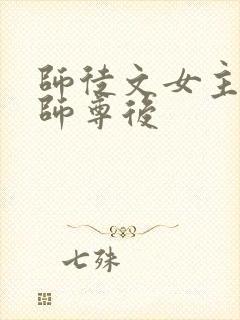 師徒文女主
師尊後
七殊